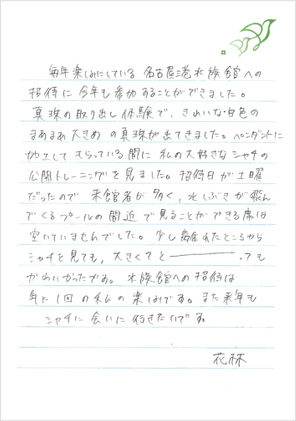 毎年楽しみにしている名古屋港水族館への
招待に今年も参加することができました。
真珠の取り出し体験で、きれいな白色の
まあまあ大きめの真珠が出てきました。ペンダントに
加工してもらっている間に私の大好きなシャチの
公開トレーニングを見ました。招待日が土曜
だったので来館者が多く、水しぶきが飛ん
でくるプールの間近で見ることができる席は
空いていませんでした。少し離れたところから
シャチを見ても、大きくてと————ても
かわいかったであ。水族館への招待は
年に1回の私の楽しみです。また来年も
シャチに会いに行きたいです。
花林